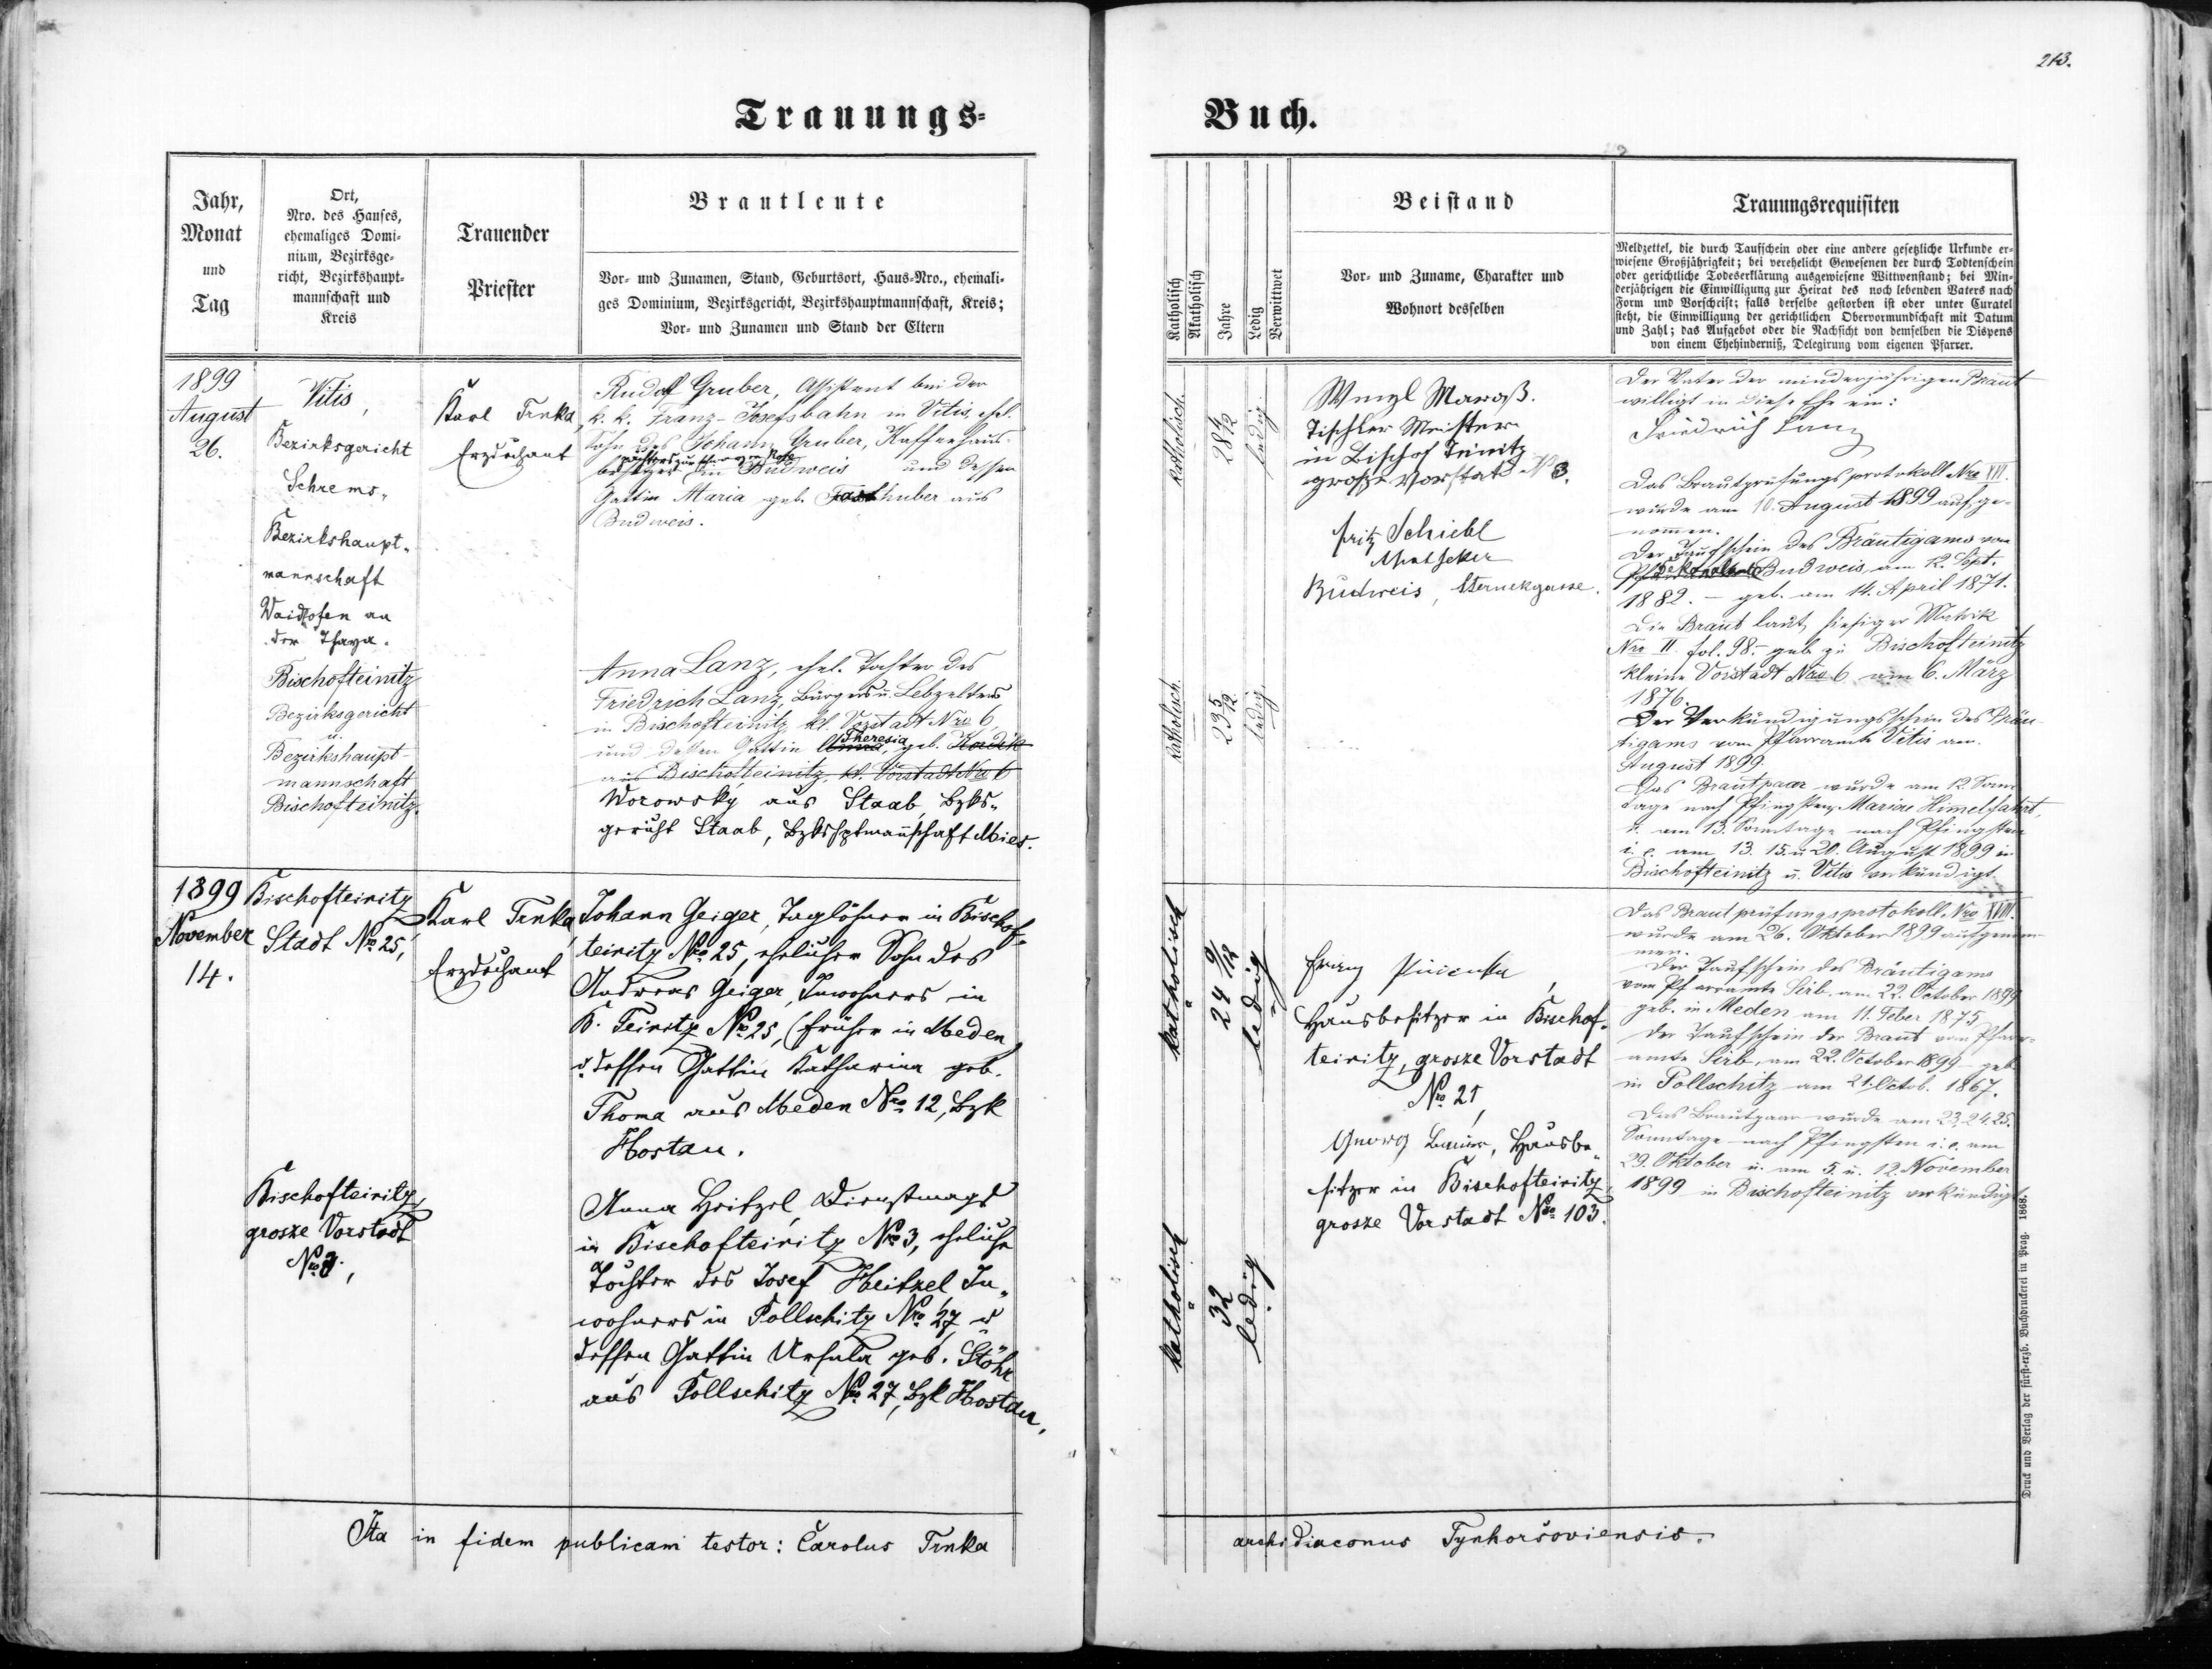 213.
Trauungs-
Buch.
Jahr,
Monat
und
Tag
Ort,
Nro. des Hauses,
ehemaliges Domi-
nium, Bezirksge-
richt, Bezirkshaupt-
mannschaft und
Kreis
Trauender
Priester
Brautleute
Vor- und Zunamen, Stand, Geburtsort, Haus-Nro., ehemali-
ges Dominium, Bezirksgericht, Bezirkshauptmannschaft, Kreis;
Vor- und Zunamen und Stand der Eltern
Katholisch
Akatholisch
Jahre
Ledig
Verwittwet
Beistand
Vor- und Zuname, Charakter und
Wohnort desselben
Trauungsrequisiten
Meldzettel, die durch Taufschein oder eine andere gesetzliche Urkunde er-
wiesene Großjährigkeit; bei verehelicht Gewesenen der durch Todtenschein
oder gerichtliche Todeserklärung ausgewiesene Wittwenstand; bei Min-
derjährigen die Einwilligung zur Heirat des noch lebenden Vaters nach
Form und Vorschrift; falls derselbe gestorben ist oder unter Curatel
steht, die Einwilligung der gerichtlichen Obervormundschaft mit Datum
und Zahl; das Aufgebot oder die Nachsicht von demselben die Dispens
von einem Ehehinderniß, Delegirung vom eigenen Pfarrer.
1899
August
26.
Vitis,
Bezirksgericht
Schrems,
Bezirkshaupt-
mannschaft
Waidhofen an
der Thaya.
Bischofteinitz
Bezirksgericht
u.
Bezirkshaupt-
mannschaft
Bischofteinitz.
Karl Trnka,
Erzdechant
Rudolf Gruber, Assistent bei der
k. k. Franz-Josefsbahn in Vitis, ehel.
Sohn des Johann Gruber, Kaffeehaus-
besitzers in Budweis und dessen
Gattin Maria geb. Fasthuber aus
Budweis.
Anna Lanz, ehel. Tochter des
Friedrich Lanz, Bürgers u. Lebzelters
in Bischofteinitz, kl. Vorstadt Nro 6,
Theresia
und dessen Gattin Anna, geb. Kordik
aus Bischofteinitz, kl. Vorstadt Nro 6
Worowský aus Staab, Bzks-
gericht Staab, Bzkshptmannschaft Mies.
katholisch.
28 4/12
ledig.
katholisch.
23 5/12
ledig.
Wenzl
Tischler Meister
in Bischof Teinitz
grosze Vorstadt No 3.
Fritz Schiebl
Apotheker
Budweis, Sternekgasse.
Der Vater der minderjährigen Braut
willigt in diese Ehe ein:
Friedrich Lanz
Das Brautprüfungsprotokoll Nro XVII.
wurde am 10. August 1899 aufge-
nommen.
Der Taufschein des Bräutigams vom
Budweis am 12. Sept.
1882. – geb. am 14. April 1871.
Die Braut laut hiesiger Matrik
Nro II. fol. 98. – geb. zu Bischofteinitz
kleine Vorstadt Nro 6 am 6. März
1876.
Der Verkündigungsschein des Bräu-
tigams vom Pfarramte Vitis am
August 1899.
Das Brautpaar wurde am 12. Sonn-
tage nach Pfingsten, Mariae Himmelfahrt,
u. am 13. Sonntage nach Pfingsten
i. e. am 13. 15. u 20. August 1899 in
Bischofteinitz u. Vitis verkündigt.
1899
November
14.
Bischofteinitz
Stadt Nro 25,
Bischofteinitz,
grosze Vorstadt
Nro 3.,
Karl Trnka,
Erzdechant
Johann Geiger, Taglöhner in Bischof-
teinitz Nro 25, ehelicher Sohn des
Andreas Geiger, Inwohners in
B. Teinitz Nro 25, (früher in Meden)
u. dessen Gattin Katharina geb.
Thoma aus Meden Nro 12, Bzk
Hostau.
Anna Heitzel, Dienstmagd
in Bischofteinitz Nro 3, eheliche
Tochter des Josef Heitzel In-
wohners in Pollschitz Nro 27, u
dessen Gattin Ursula geb. Stöhr
aus Pollschitz Nro 27, Bzk Hostau.
katholisch
24 9/12
ledig
katholisch
32
ledig
Franz
Hausbesitzer in Bischof-
teinitz, grosze Vorstadt
Nro 21,
Georg Bauer, Hausbe-
sitzer in Bischofteinitz
grosze Vorstadt Nro 103.
Das Brautprüfungsprotokoll Nro XVIII.
wurde am 26. Oktober 1899 aufgenom-
men.
Der Taufschein des Bräutigams
vom Pfarramte Sirb. am 22. October 1899
geb. in Meden am 11. Feber 1875.
Der Taufschein der Braut vom Pfarr-
amte Sirb. am 22. October 1899 – geb.
in Pollschitz am 21. Octob. 1867.
Das Brautpaar wurde am 23. 24. 25.
Sonntage nach Pfingsten i. e. am
29. Oktober u. am 5. u. 12. November
1899 in Bischofteinitz verkündigt
Ita in fidem publicam testor: Carolus Trnka
archidiaconus Tynhoršoviensis.
Druck und Verlag der fürst-erzb. Buchdruckerei in Prag. 1868.